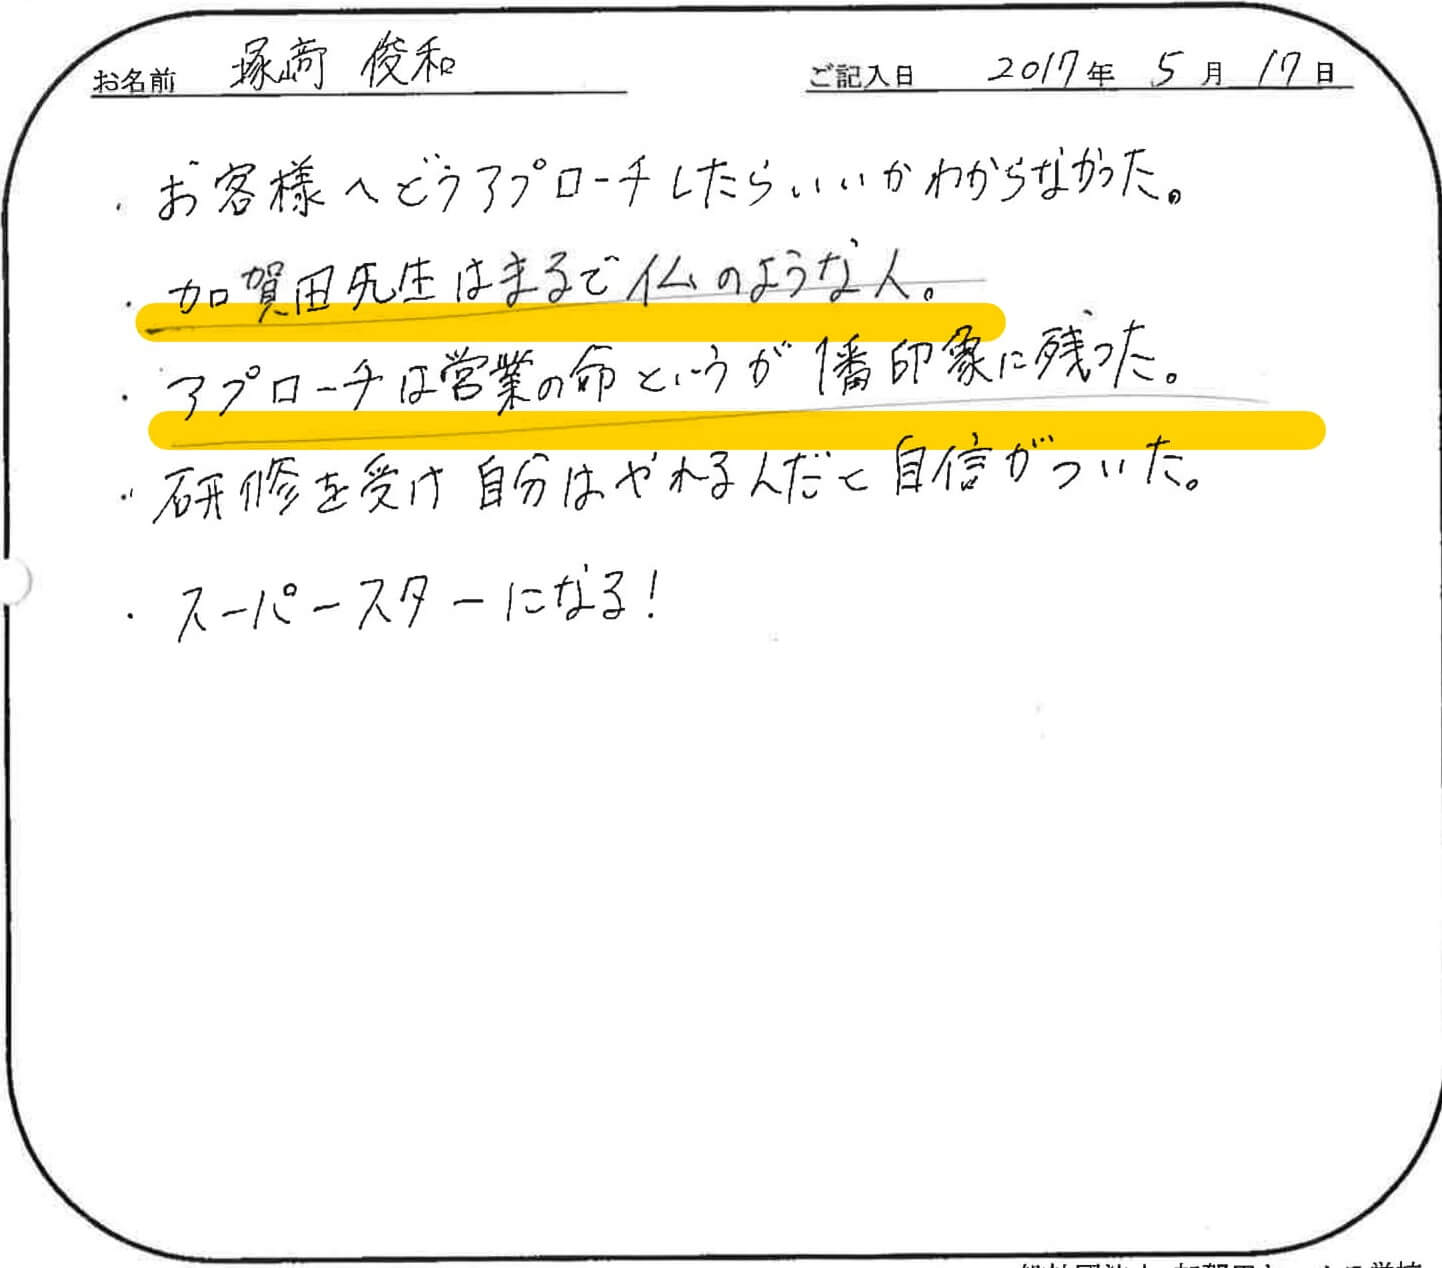 お名前 塚﨑 俊和 ご記入日 2017年 5月 17日
・お客様へどうアプローチしたらいいかわからなかった。
・加賀田先生はまるで仏のような人。
・アプローチは営業の命というが1番印象に残った。
・研修を受け自分はやれるんだと自信がついた。
・スーパースターになる!